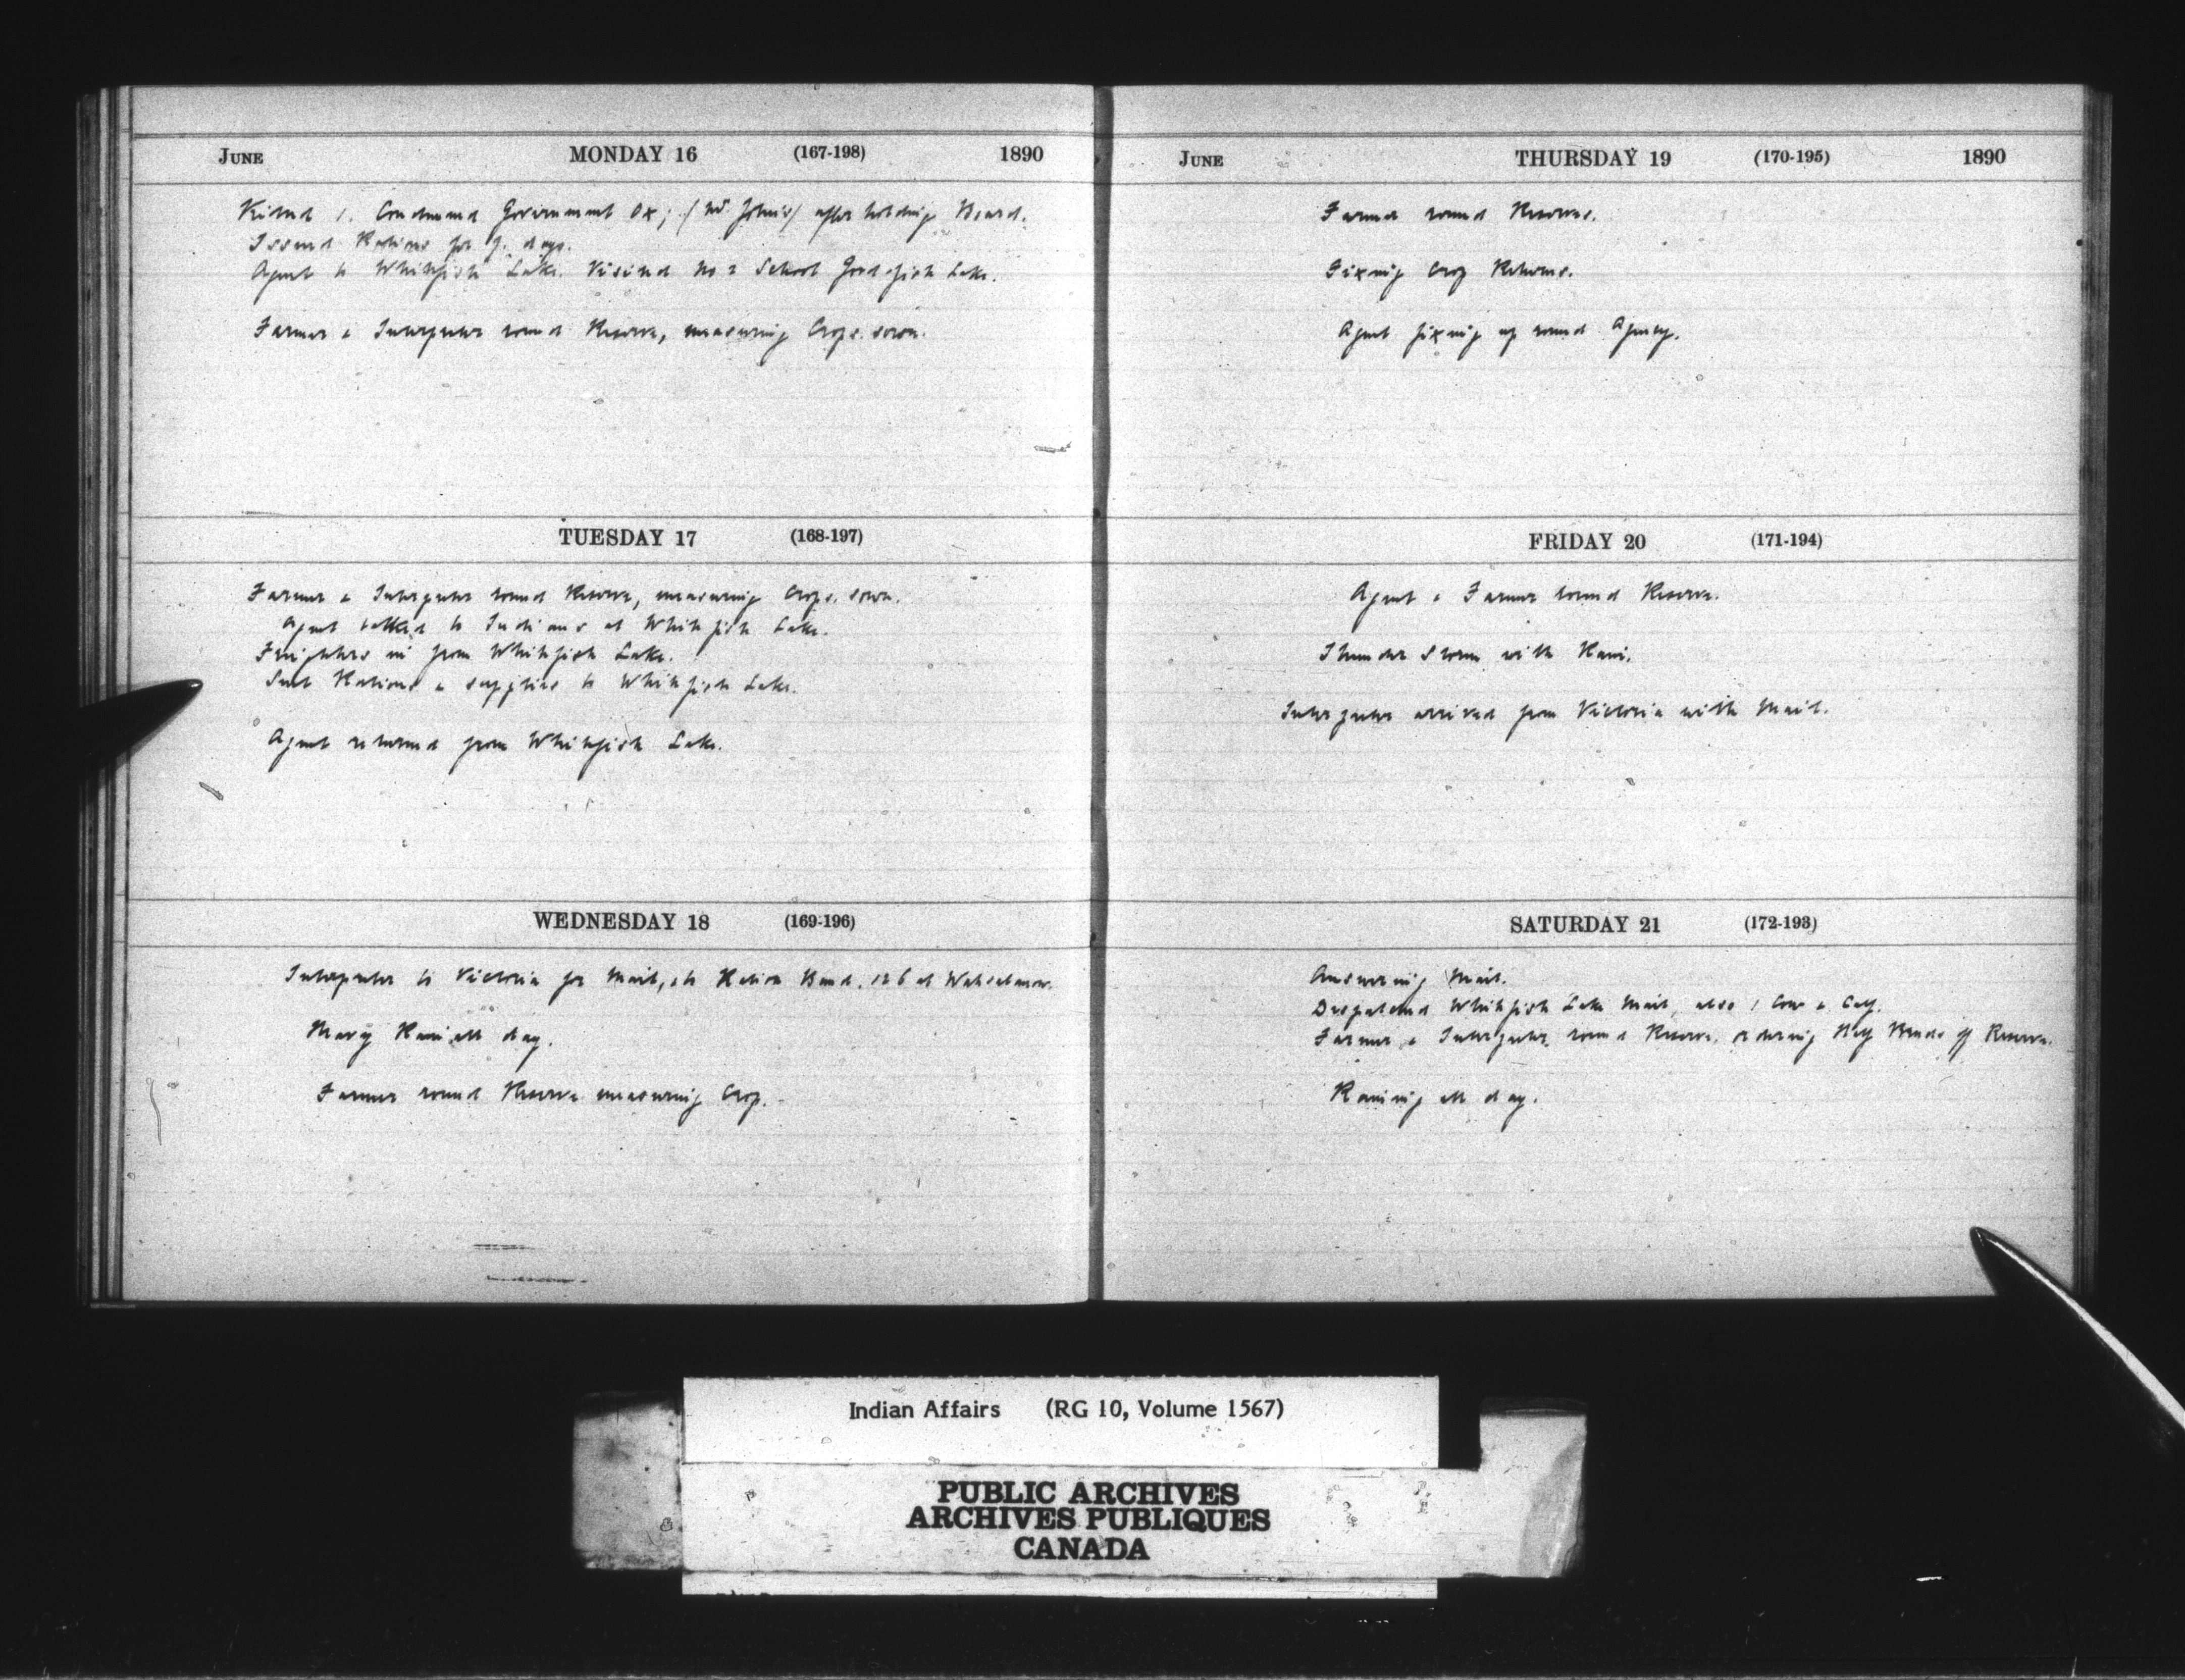 JUNE MONDAY 16 (167-198) 1890
Killed 1. Condemned Government Ox; / after holding Board.
Issued Rations for 7. days.
Agent to Whitefish Lake. Visited No 2 School Goodfish Lake.
Farmer & Interpreter round Reserve, measuring Crops. sown.
TUESDAY 17 (168-197)
Farmer & Interpreter round Reserve, measuring Crops. sown.
Agent talked to Indians at Whitefish Lake.
Freighters in from Whitefish Lake.
Sent Rations & supplies to Whitefish Lake.
Agent returned from Whitefish Lake.
WEDNESDAY 18 (169-196)
Interpreter to Victoria for Mail, & to Ration Band. 126 at Wahsatanow.
Heavy Rain all day.
Farmer round Reserve measuring Crop.
JUNE THURSDAY 19 (170-195) 1890
Farmer round Reserves.
Fixing Crop Returns.
Agent fixing up round Agency.
FRIDAY 20 (171-194)
Agent & Farmer round Reserve.
Thunder Storm with Rain.
Interpreter arrived from Victoria with Mail.
SATURDAY 21 (172-193)
Answering Mail.
Despatched Whitefish Lake Mail, also 1 Cow & Calf.
Farmer & Interpreter round Reserve. ordering Half Breeds off Reserve.
Raining all day.
Indian Affairs (RG 10, Volume 1567)
PUBLIC ARCHIVES
ARCHIVES PUBLIQUES
CANADA